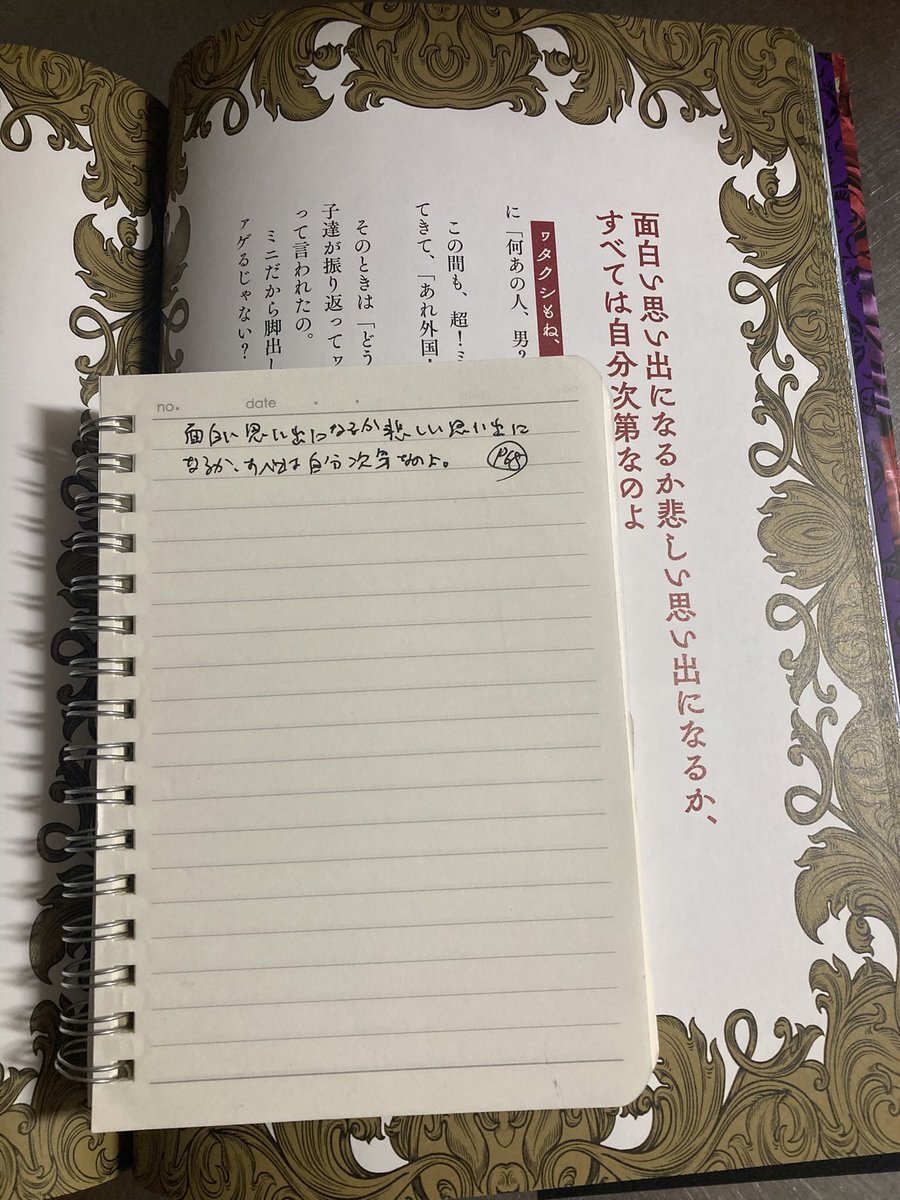 面白い思い出になるか悲しい思い出になるか、
すべては自分次第なのよ
ヮタクシもね、
に「何あの人、男?
この間も、超!ミ
てきて、「あれ外国
そのときは「どう
子達が振り返ってヮ
って言われたの。
ミニだから脚出し
ァゲるじゃない?
no.
date
面白い思い出になるか悲しい思い出に
なるか、すべては自分次第なのよ。